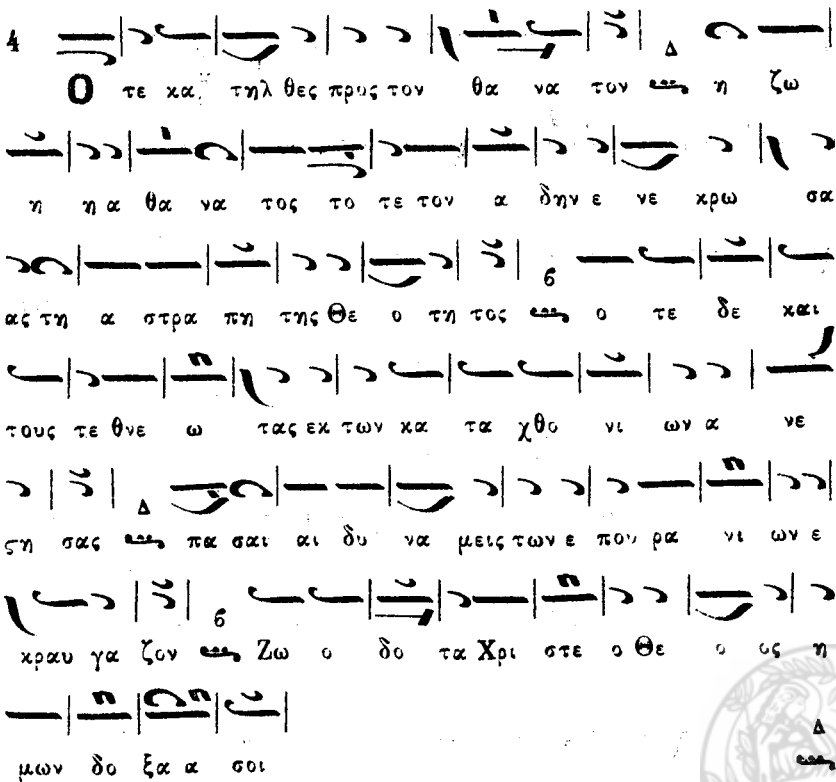 4
Δ
Ο τε κα τηλ θες προς τον θα να τον η ζω
η η α θα να τος το τε τον α δην ε νε κρω σα
6
ας τη α στρα πη της Θε ο τη τος ο τε δε και
τους τε θνε ω τας εκ των κα τα χθο νι ων α νε
Δ
ϛη σας πα σαι αι δυ να μεις των ε που ρα νι ων ε
6
κραυ γα ζον Ζω ο δο τα Χρι στε ο Θε ο ος η
Δ
μων δο ξα α σοι